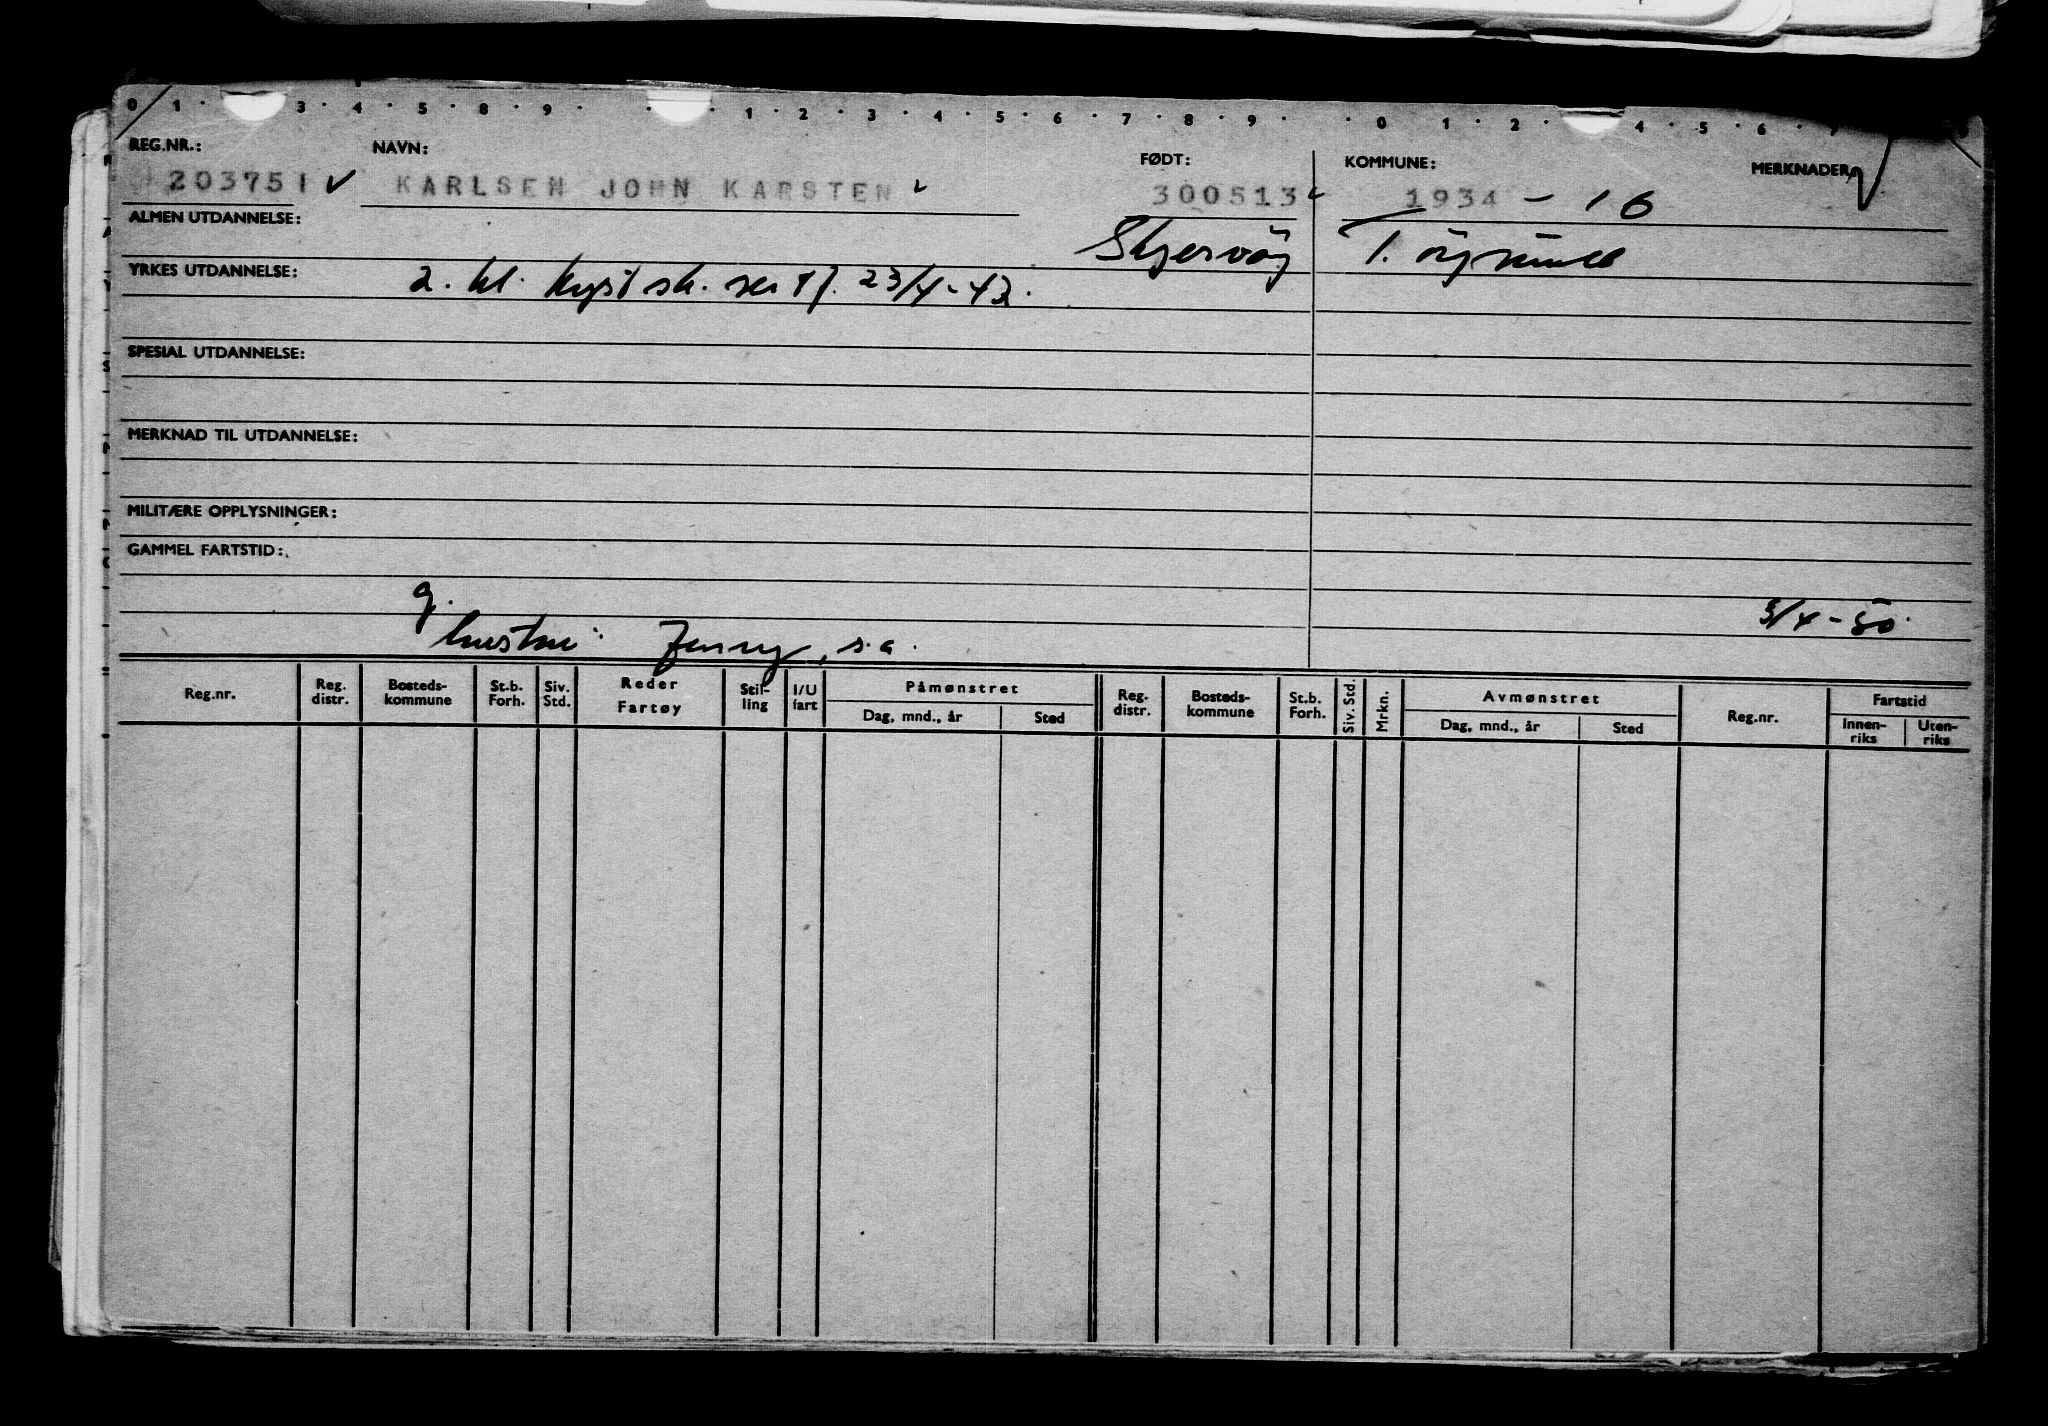 0 1 · 3 · 4 · 5 · 8 · 9 · · · 1 · 2 · 3 · 4 · 5 · 6 · 7 · 8 · 9 · · 0 · 1 · 2 · 4 · 5 · 6 · 7
REG.NR.: NAVN: FØDT: KOMMUNE: MERKNADER
203751 KARLSEN JOHN KARSTEN 300513 1934 - 16
ALMEN UTDANNELSE: Skjervöy T.
YRKES UTDANNELSE: 2. kl. kyst sk. sertf. 23/4-42.
SPESIAL UTDANNELSE:
MERKNAD TIL UTDANNELSE:
MILITÆRE OPPLYSNINGER:
GAMMEL FARTSTID:
g. 3/4-50.
hustru: Jenny, s.a.
Reg.nr. Reg. distr. Bosteds- kommune St.b. Forh. Siv. Std. Reder Fartøy Stil- ling I/U fart Påmønstret Dag, mnd., år Sted Reg. distr. Bosteds- kommune St.b. Forh. Siv. Std. Mrkn. Avmønstret Dag, mnd., år Sted Reg.nr. Fartstid Innen- riks Uten- riks